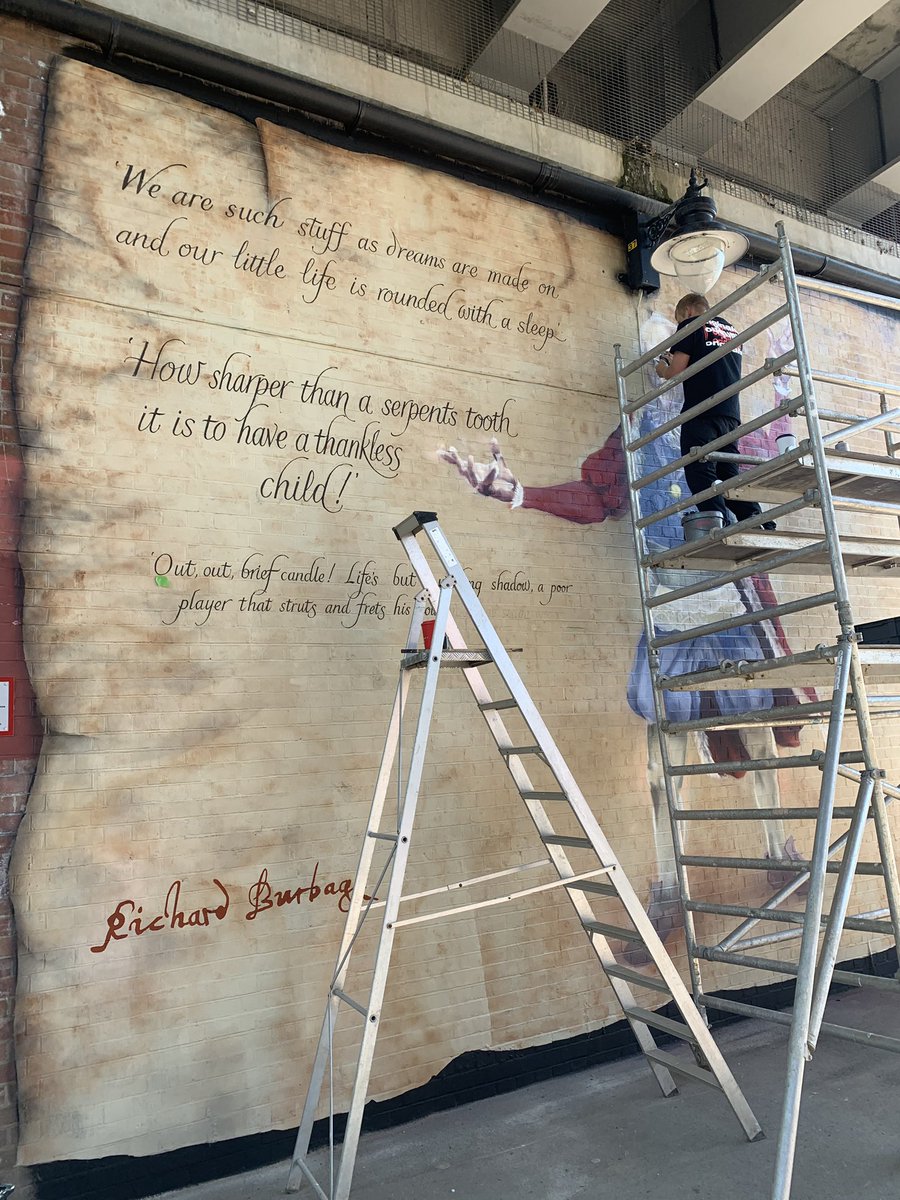 'We are such stuff as dreams are made on
and our little life is rounded with a sleep.'
'How sharper than a serpents tooth
it is to have a thankless
child!'
'Out, out, brief candle! Life's but shadow, a poor
player that struts and frets his
Richard Burbage